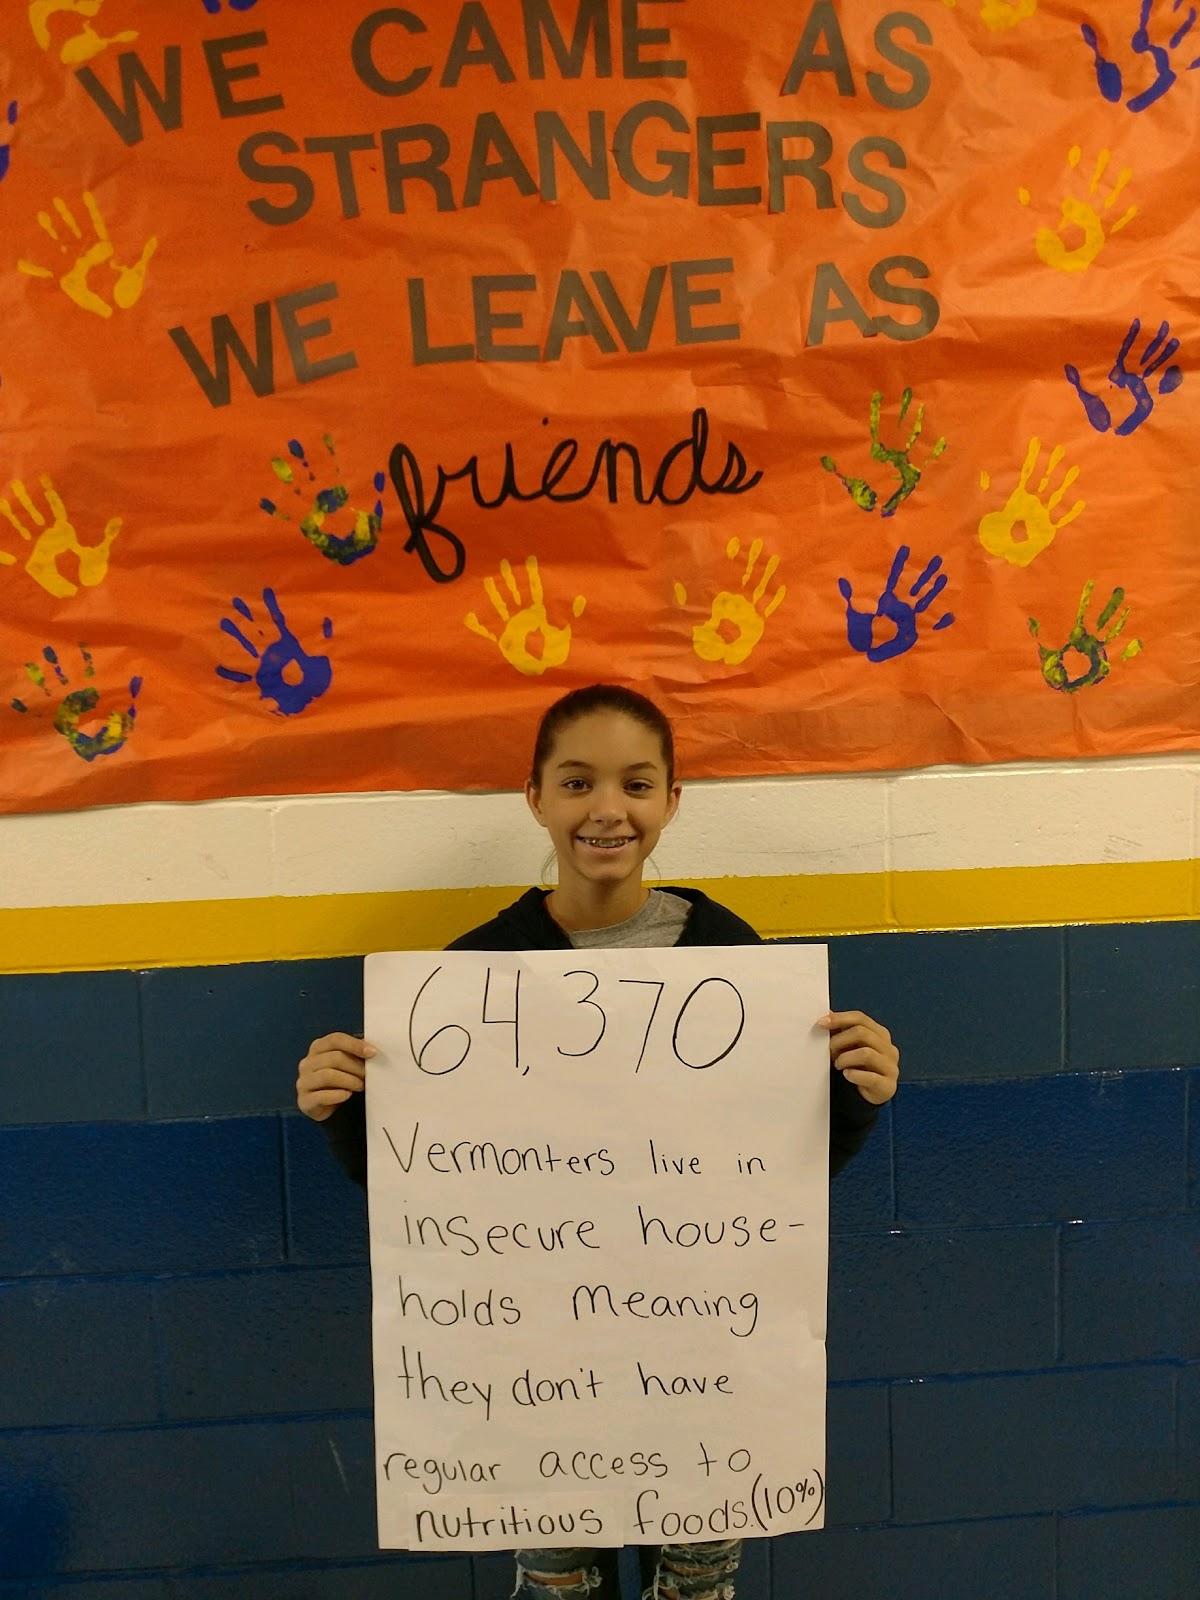 WE CAME AS
STRANGERS
WE LEAVE AS
friends
64,370
Vermonters live in
insecure house-
holds meaning
they don't have
regular access to
nutritious foods. (10%)